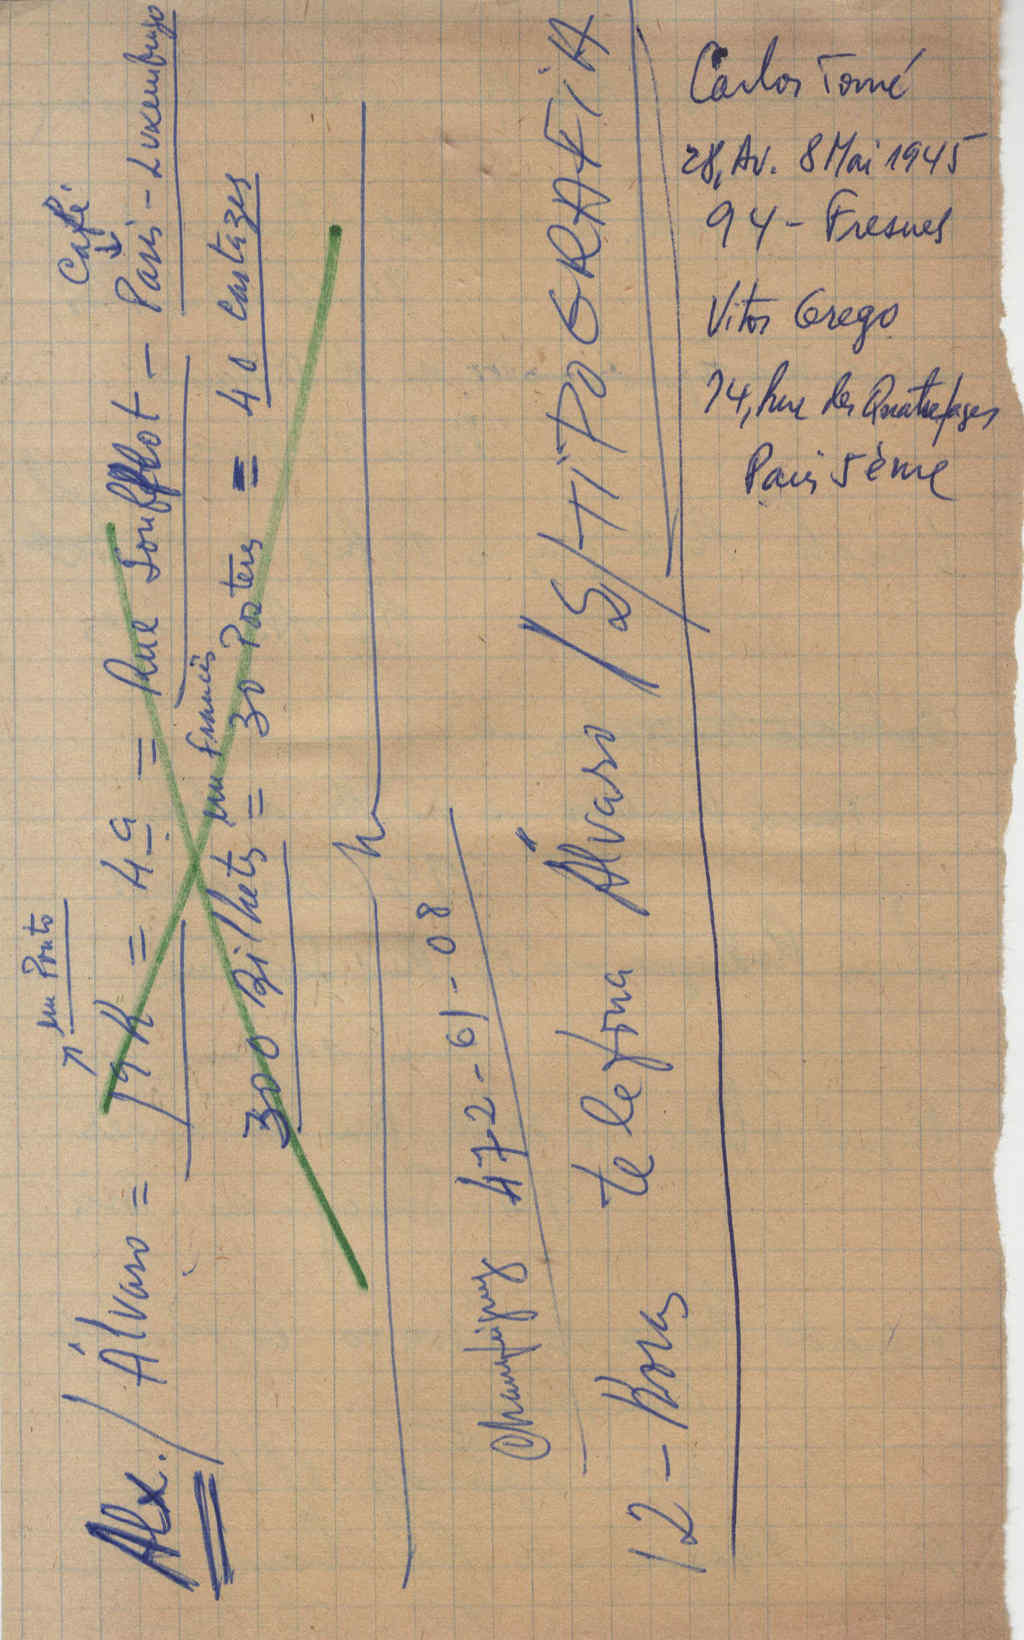 em Ponto
Café
Alx. / Álvaro = 19 H = 4ª = Rue Soufflot - Paris - Luxemburgo
em francês
300 Bilhets = 30 Posters = 40 cartazes
Champigny 472-61-08
12 - Horas telefona Álvaro / S/TiPOGRAFiA
Carlos Tomé
28, Av. 8 Mai 1945
94 - Fresnes
Vitor Grego
14, Rue des Quatrefages
Paris 5ème